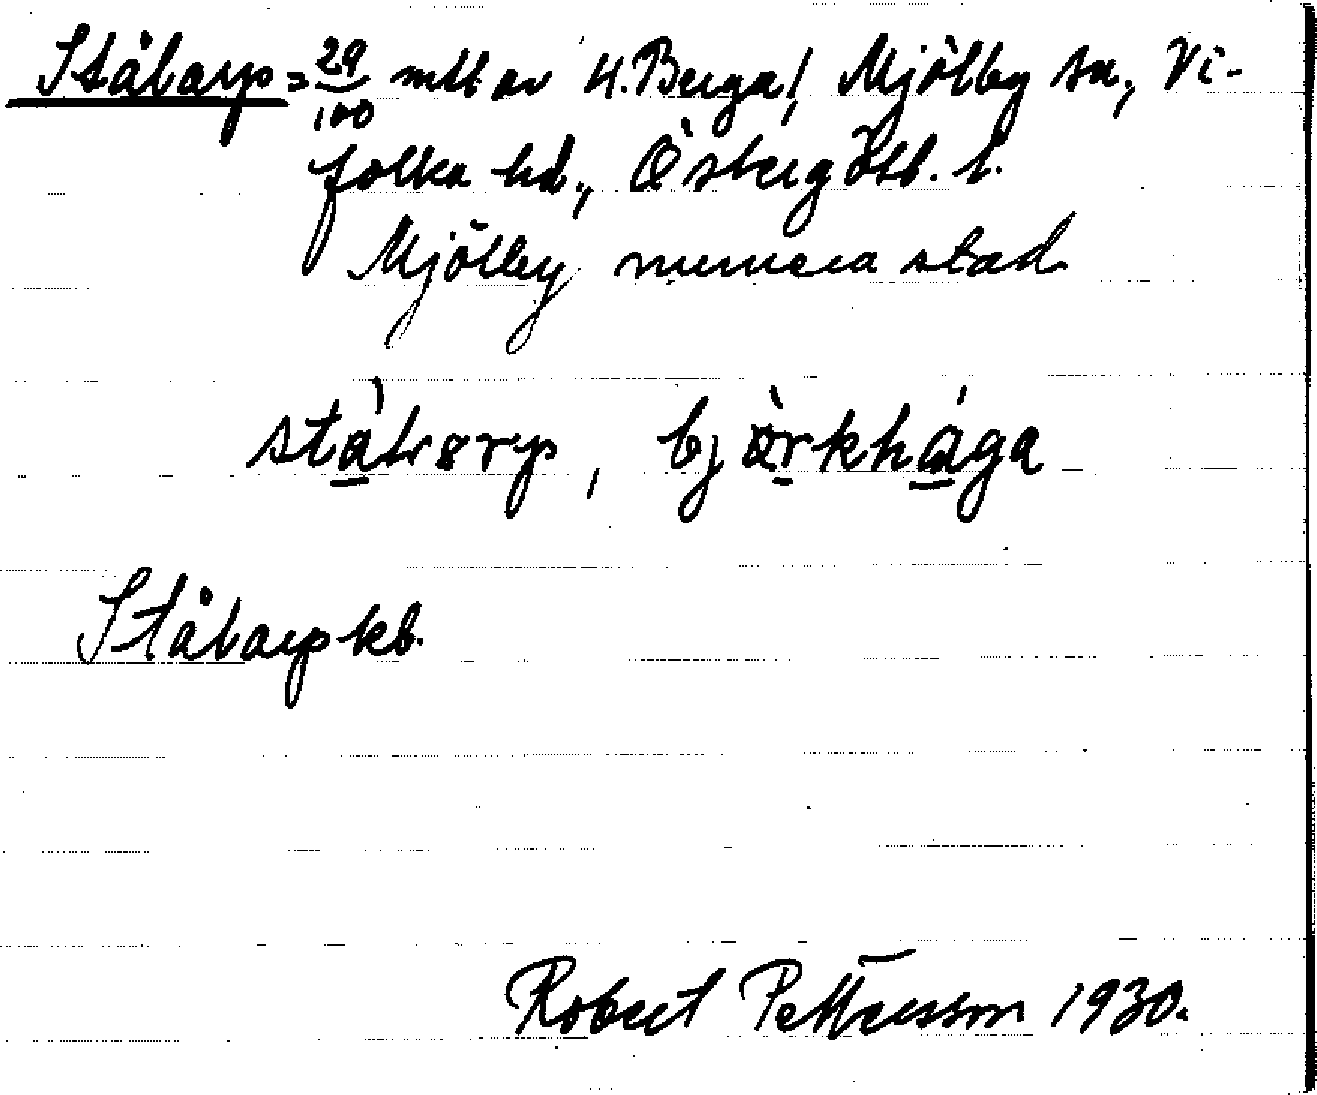 Ståbarp = 29/100 mtl av H. Berga!, Mjölby sn, Vi-
folka hd., Östergötl. l.
Mjölby numera stad
ståbarp, bjàrkhága
Ståbarp kb.
Robert Pettersson 1930.